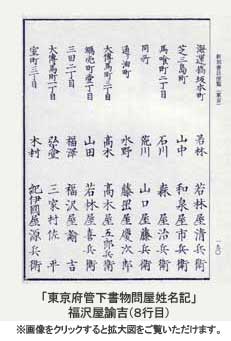 新刻書目便覧(東京)
海運橋坂本町 若林 若林屋清兵衛
芝三島町 山中 和泉屋市兵衛
馬喰町二丁目 石川 森屋治兵衛
同所 荒川 山口屋藤兵衛
通油町 水野 藤岡屋慶次郎
大傳馬町二丁目 高木 高木屋五郎兵衛
町壹丁目 山田 若林屋喜兵衛
三田二丁目 福澤 福沢屋諭吉
大傳馬町二丁目 三家村佐平
室町三丁目 木村 紀伊國屋源兵衛
「東京府管下書物問屋姓名記」
福沢屋諭吉(8行目)
※画像をクリックすると拡大図をご覧いただけます。